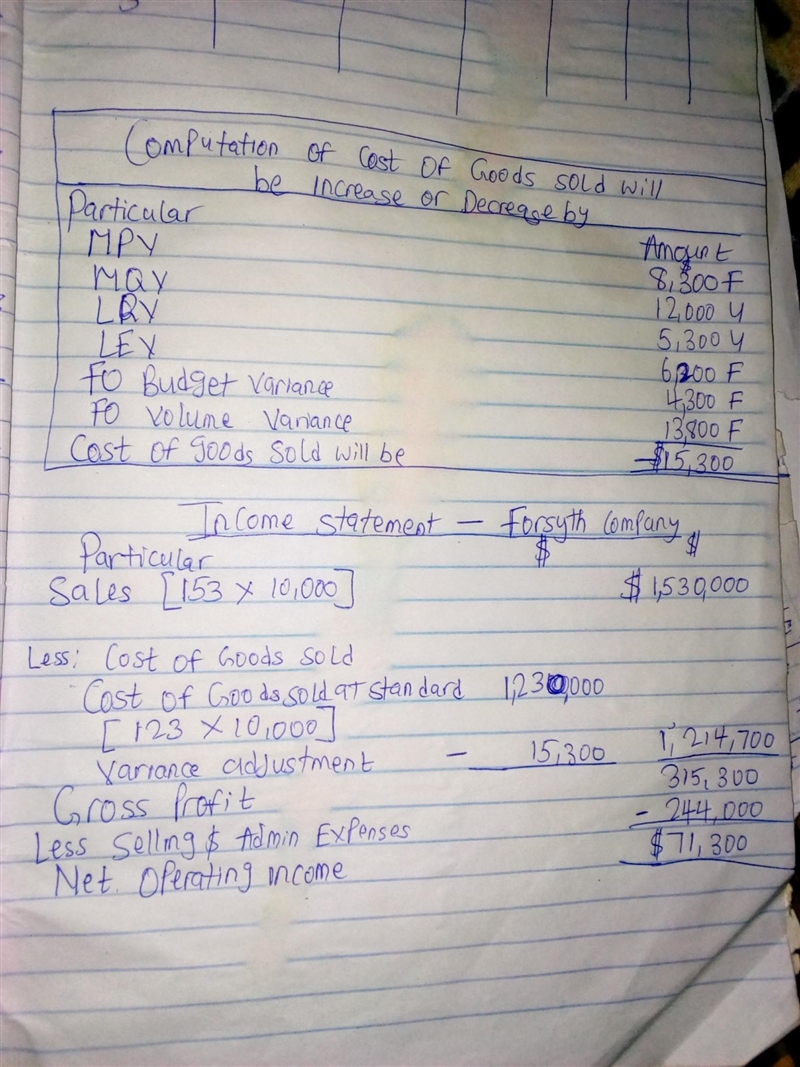 Computation of Cost Of Goods Sold will
be Increase or Decrease by
Particular Amount
$
MPV 8,300 F
MQV 12,000 U
LRV 5,300 U
LEV 6,200 F
FO Budget Variance 4,300 F
FO Volume Variance 13,800 F
Cost of goods Sold will be -$15,300
Income statement — Forsyth Company
Particular $ $
Sales [153 × 10,000] $1,530,000
Less: Cost of Goods Sold
Cost of Goods sold at standard 1,230,000
[123 × 10,000]
Variance adjustment - 15,300 1,214,700
Gross Profit 315,300
Less Selling $ Admin Expenses - 244,000
Net. Operating income $71,300